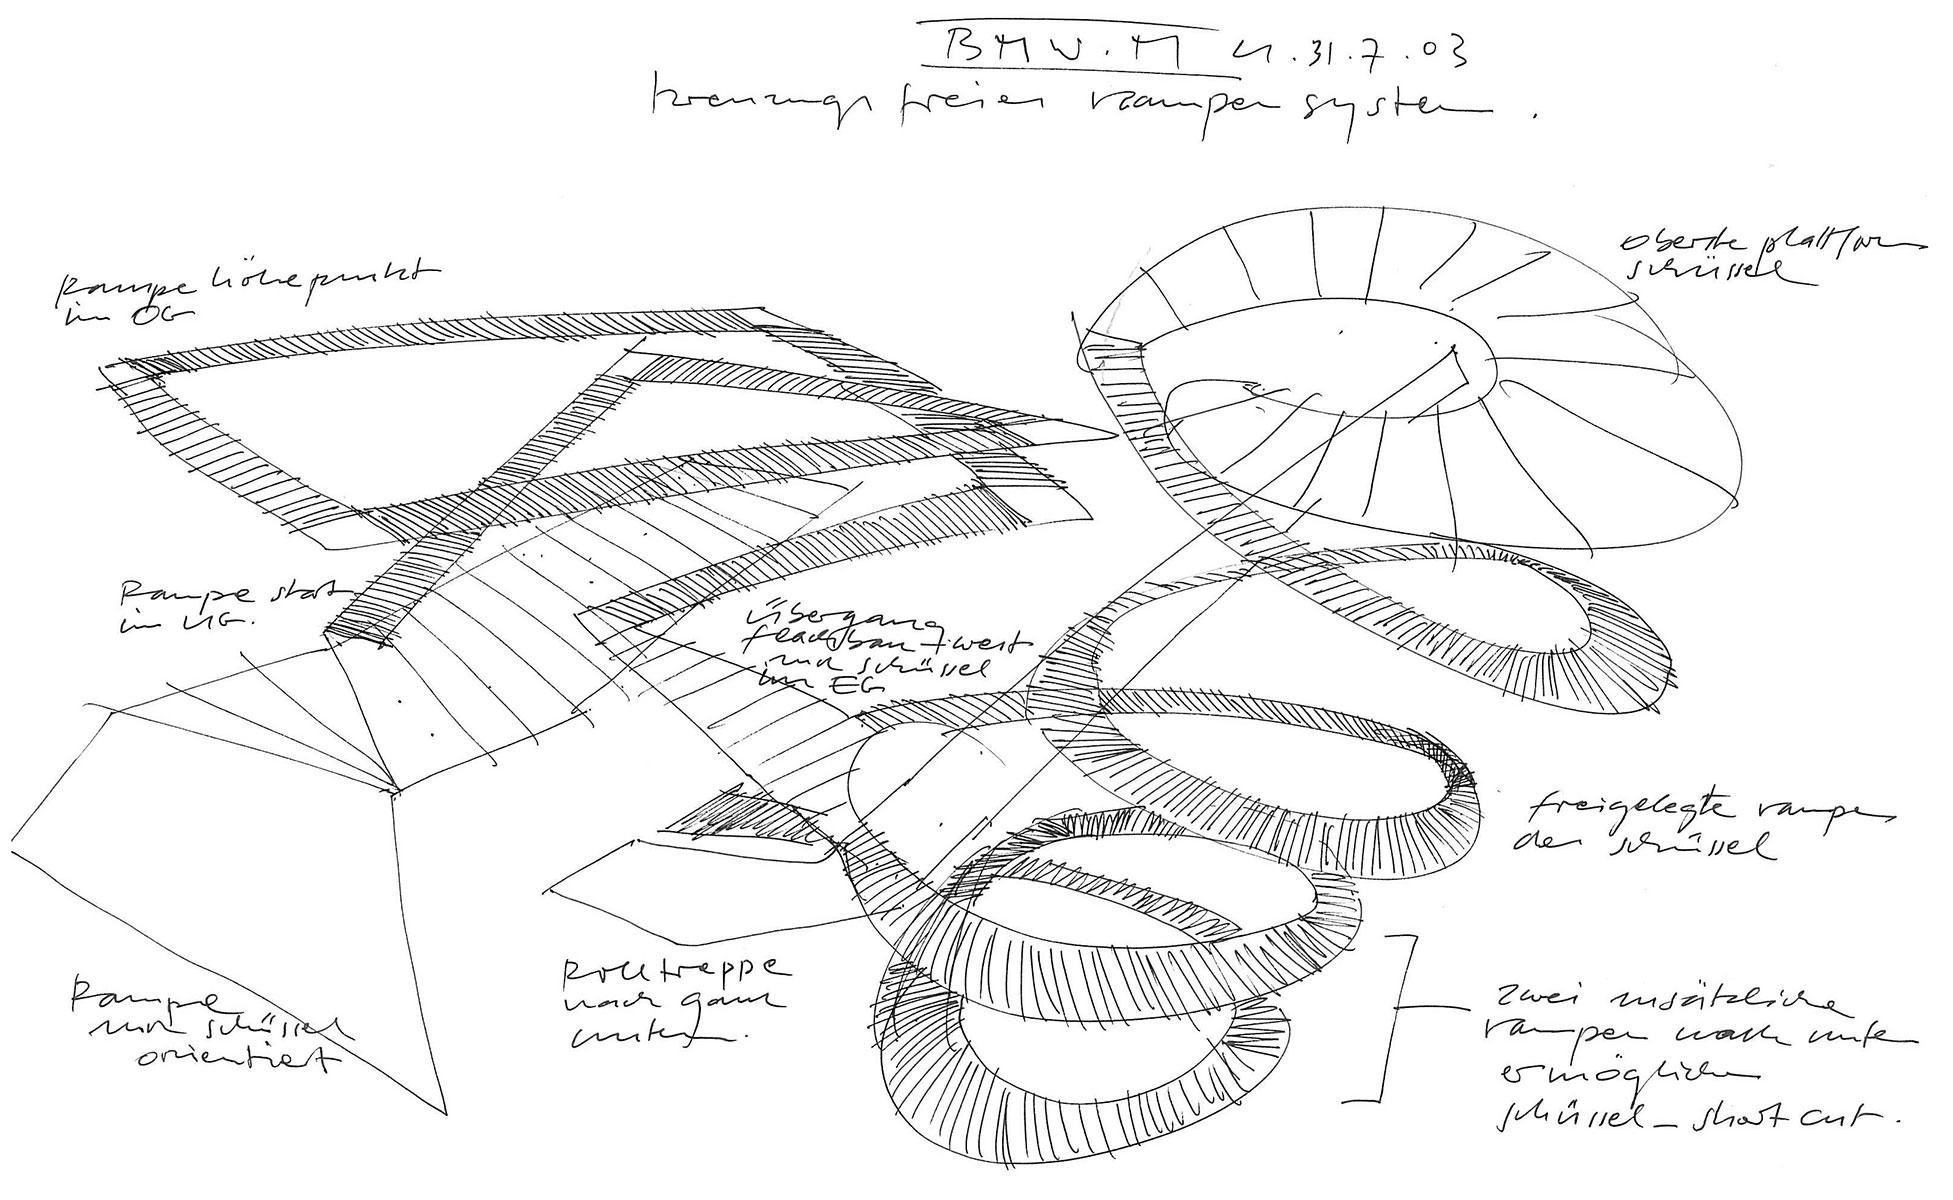 BMW.M 31.7.03
kreuzungsfreies rampensystem.
oberste plattform
schüssel
Rampe höhepunkt
im OG
Rampe start
im UG.
Übergang
flachbau + west
zur schüssel
im EG
freigelegte rampen
der schüssel
Rampe
zur schüssel
orientiert
Rolltreppe
nach ganz
unten.
zwei zusätzliche
rampen nach unten
ermöglichen
schüssel - short cut.